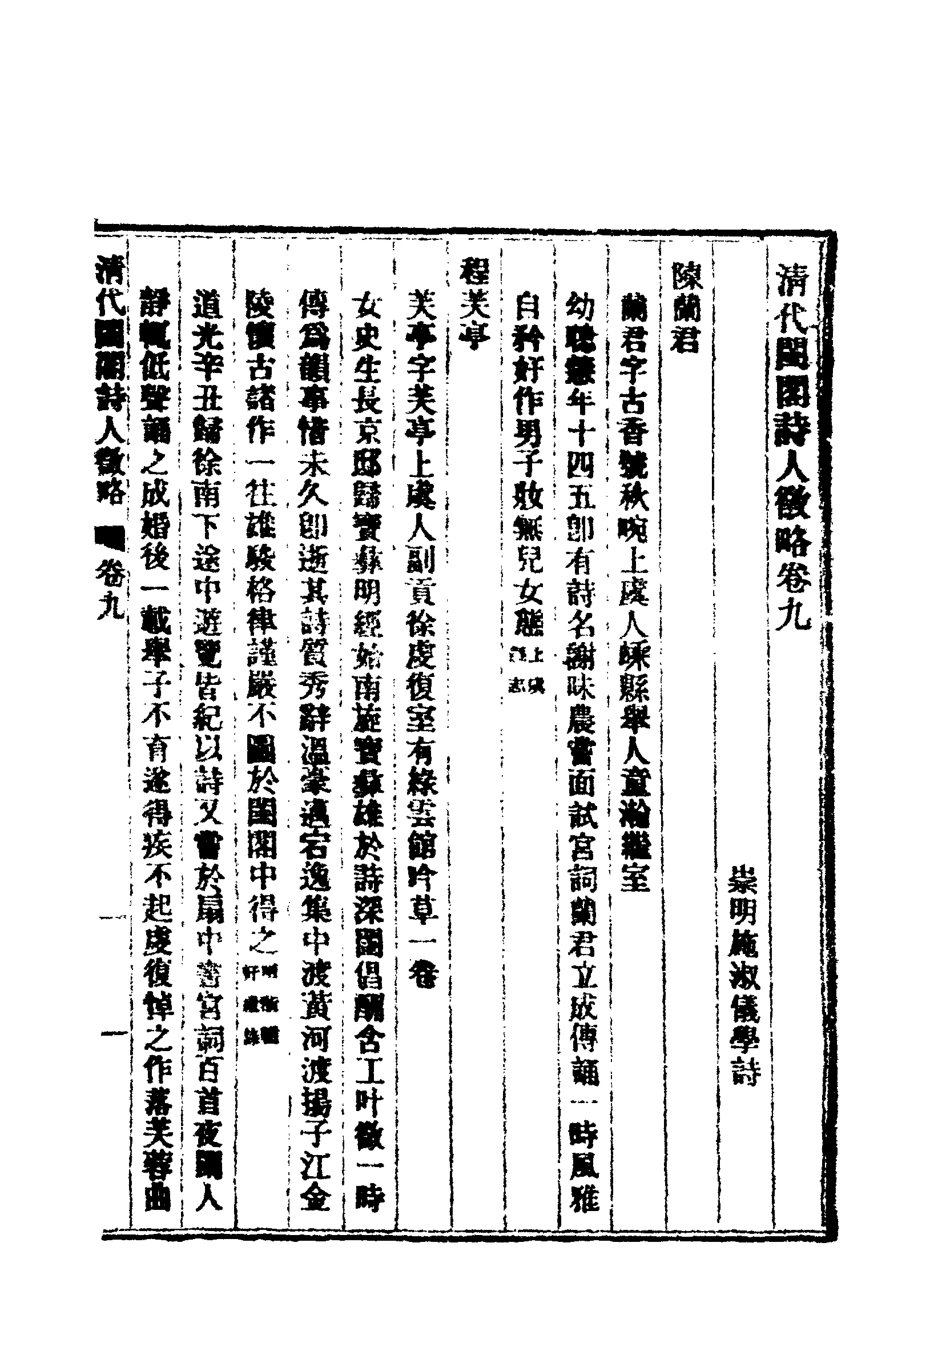 清代閨閣詩人徵略卷九
崇明施淑儀學詩
陳蘭君
蘭君字古香號秋畹上虞人嵊縣舉人童瀚繼室
幼聰慧年十四五卽有詩名謝味農嘗面試宮詞蘭君立成傳誦一時風雅
自矜好作男子妝無兒女態上虞縣志
程芙亭
芙亭字芙亭上虞人副貢徐虔復室有綠雲館吟草一卷
女史生長京邸歸寶彝明經始南旋寶彝雄於詩深閨倡酬含工叶徵一時
傳爲韻事惜未久卽逝其詩質秀辭溫豪邁宕逸集中渡黃河渡揚子江金
陵懷古諸作一往雄駿格律謹嚴不圖於閨閣中得之
道光辛丑歸徐南下途中遊覽皆紀以詩又嘗於扇中書宮詞百首夜闌人
靜輒低聲誦之成婚後一載舉子不育遂得疾不起虔復悼之作落芙蓉曲
清代閨閣詩人徵略 卷九 一